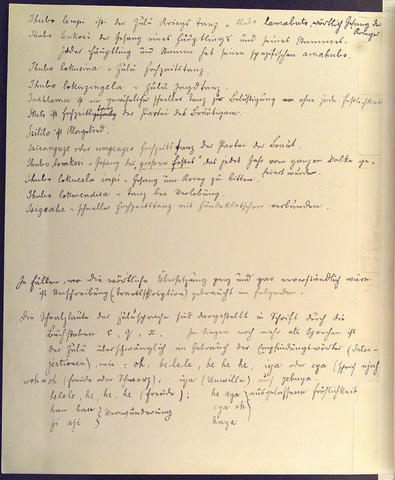 Ihubo lempi ist der Zulu Kriegs Tanz = Ihubo lamabuto, wörtlich Gesang der Krieger.
Ihubo lenkosi der Gesang eines Häuptlings und seines Stammes.
Jeder Häuptling und Stamm hat seine spezifischen amahubo.
Ihubo lokusina = Zulu Hochzeitstanz.
Ihubo lokuzingela = Zulu Jagdtanz.
ist ein gewöhnlicher schneller Tanz zur Belustigung ohne jede Festlichkeit
ist Hochzeitsgesang der Partei des Bräutigams.
Isililo ist Klagelied.
oder umgcagco Hochzeitstanz der Partei der Braut.
Ihubo = Gesang des grossen Festes, das jedes Jahr vom ganzen Volke ge-
feiert wurde.
Ihubo lokucela impi = Gesang um Krieg zu bitten.
Ihubo lokwendisa = Tanz bei Verlobung.
= schneller Hochzeitstanz mit Händeklatschen verbunden.
In Fällen, wo die wörtliche Übersetzung ganz und gar unverständlich wäre
ist Umschreibung gebraucht im folgenden.
Die Schnalzlaute der Zulusprache sind dargestellt in Schrift durch die
Buchstaben c, q, x. Im Singen noch mehr als Sprechen ist
der Zulu überschwänglich im Gebrauch der Empfindungswörter (Inter-
jectionen), wie: oh, he lele, he he he, iya oder eya (sprich
woh = oh (Freude oder Schmerz), iya (Unwille)
helele, he, he, he (Freude); he aya ausgelassene Fröhlichkeit
hau hau Verwunderung
ji aji haya